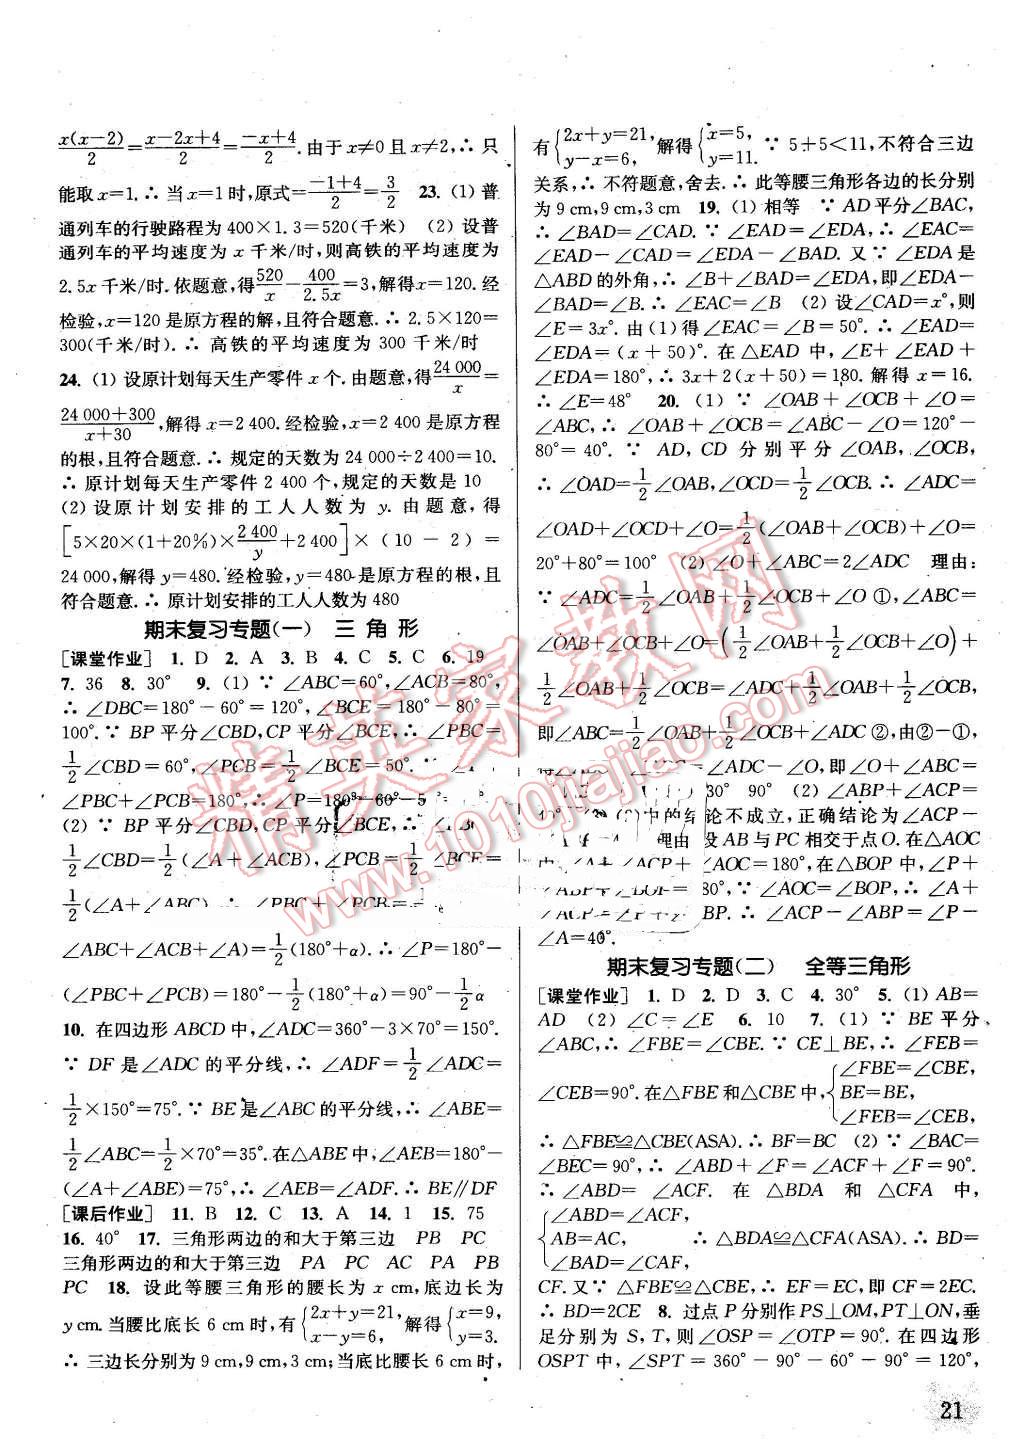 x(x−2)/2=(x−2x+4)/2=(−x+4)/2.由于 x≠0 且 x≠2,∴ 只
能取 x=1.∴ 当 x=1 时,原式=(−1+4)/2=3/2 23. (1) 普
通列车的行驶路程为 400×1.3=520(千米) (2) 设普
通列车的平均速度为 x 千米/时,则高铁的平均速度为
2.5x 千米/时.依题意,得520/x−400/2.5x=3,解得x=120.经
检验,x=120 是原方程的解,且符合题意.∴ 2.5×120=
300(千米/时).∴ 高铁的平均速度为 300 千米/时
24. (1) 设原计划每天生产零件 x 个.由题意,得24 000/x=
(24 000+300)/(x+30),解得 x=2 400.经检验,x=2 400 是原方程
的根,且符合题意.∴ 规定的天数为 24 000÷2 400=10.
∴ 原计划每天生产零件 2 400 个,规定的天数是 10
(2) 设原计划安排的工人人数为 y. 由题意,得
[5×20×(1+20%)×2 400/y+2 400]×(10−2)=
24 000,解得 y=480.经检验,y=480 是原方程的根,且
符合题意.∴ 原计划安排的工人人数为 480
期末复习专题(一) 三角形
[课堂作业] 1. D 2. A 3. B 4. C 5. C 6. 19
7. 36 8. 30° 9. (1) ∵ ∠ABC=60°,∠ACB=80°,
∴ ∠DBC=180°−60°=120°,∠BCE=180°−80°=
100°.∵ BP 平分∠CBD,CP 平分∠BCE,∴ ∠PBC=
1/2∠CBD=60°,∠PCB=1/2∠BCE=50°.
∠PBC+∠PCB=180°,∴ ∠P=180°−60°−5
(2) ∵ BP 平分∠CBD,CP 平分∠BCE,∴
1/2∠CBD=1/2(∠A+∠ACB),∠PCB=1/2∠BCE=
1/2(∠A+∠ABC) ∠PBC+∠PCB=
∠ABC+∠ACB+∠A)=1/2(180°+α).∴ ∠P=180°−
(∠PBC+∠PCB)=180°−1/2(180°+α)=90°−1/2α
10. 在四边形 ABCD 中,∠ADC=360°−3×70°=150°.
∵ DF 是∠ADC 的平分线,∴ ∠ADF=1/2∠ADC=
1/2×150°=75°.∵ BE是∠ABC 的平分线,∴ ∠ABE=
1/2∠ABC=1/2×70°=35°.在△ABE 中,∠AEB=180°−
(∠A+∠ABE)=75°,∴ ∠AEB=∠ADF.∴ BE∥DF
[课后作业] 11. B 12. C 13. A 14. 1 15. 75
16. 40° 17. 三角形两边的和大于第三边 PB PC
三角形两边的和大于第三边 PA PC AC PA PB
PC 18. 设此等腰三角形的腰长为 x cm,底边长为
y cm.当腰比底长 6 cm 时,有{2x+y=21, x−y=6, 解得{x=9, y=3.
∴ 三边长分别为 9 cm,9 cm,3 cm;当底比腰长 6 cm 时,
有{2x+y=21, y−x=6, 解得{x=5, y=11. ∵ 5+5<11,不符合三边
关系,∴ 不符题意,舍去.∴ 此等腰三角形各边的长分别
为 9 cm,9 cm,3 cm 19. (1) 相等 ∵ AD 平分∠BAC,
∴ ∠BAD=∠CAD. ∵ ∠EAD=∠EDA,∴ ∠EAC=
∠EAD−∠CAD=∠EDA−∠BAD. 又∵ ∠EDA 是
△ABD 的外角,∴ ∠B+∠BAD=∠EDA,即∠EDA−
∠BAD=∠B.∴ ∠EAC=∠B (2) 设∠CAD=x°,则
∠E=3x°. 由(1)得∠EAC=∠B=50°. ∴ ∠EAD=
∠EDA=(x+50)°. 在△EAD 中,∠E+∠EAD+
∠EDA=180°,∴ 3x+2(x+50)=180. 解得 x=16.
∴ ∠E=48° 20. (1) ∵ ∠OAB+∠OCB+∠O=
∠ABC,∴ ∠OAB+∠OCB=∠ABC−∠O=120°−
80°=40°. ∵ AD, CD 分别平分∠OAB,∠OCB,
∴ ∠OAD=1/2∠OAB,∠OCD=1/2∠OCB.∴ ∠ADC=
∠OAD+∠OCD+∠O=1/2(∠OAB+∠OCB)+∠O=
20°+80°=100° (2) ∠O+∠ABC=2∠ADC 理由:
∵ ∠ADC=1/2∠OAB+1/2∠OCB+∠O ①,∠ABC=
∠OAB+∠OCB+∠O=(1/2∠OAB+1/2∠OCB+∠O)+
1/2∠OAB+1/2∠OCB=∠ADC+1/2∠OAB+1/2∠OCB,
即∠ABC=1/2∠OAB+1/2∠OCB+∠ADC ②,由②−①,
得 ∠ADC−∠O,即∠O+∠ABC=
30° 90° (2) ∠ABP+∠ACP=
中的结论不成立,正确结论为∠ACP−
理由 设 AB 与 PC 相交于点 O.在△AOC
中,∠A+∠ACP+∠AOC=180°,在△BOP 中,∠P+
∠ABP+∠BOP= 80°,∵ ∠AOC=∠BOP,∴ ∠A+
∠ACP=∠P+ BP. ∴ ∠ACP−∠ABP=∠P−
∠A=40°.
期末复习专题(二) 全等三角形
[课堂作业] 1. D 2. D 3. C 4. 30° 5. (1) AB=
AD (2) ∠C=∠E 6. 10 7. (1) ∵ BE 平分
∠ABC,∴ ∠FBE=∠CBE. ∵ CE⊥BE,∴ ∠FEB=
∠CEB=90°.在△FBE 和△CBE 中,{∠FBE=∠CBE, BE=BE, ∠FEB=∠CEB,
∴ △FBE≌△CBE(ASA).∴ BF=BC (2) ∵ ∠BAC=
∠BEC=90°,∴ ∠ABD+∠F=∠ACF+∠F=90°.
∴ ∠ABD=∠ACF. 在△BDA 和△CFA 中,
{∠ABD=∠ACF, AB=AC, ∠BAD=∠CAF, ∴ △BDA≌△CFA(ASA).∴ BD=
CF. 又∵ △FBE≌△CBE,∴ EF=EC,即 CF=2EC.
∴ BD=2CE 8. 过点 P 分别作 PS⊥OM,PT⊥ON,垂
足分别为 S,T,则∠OSP=∠OTP=90°. 在四边形
OSPT 中,∠SPT=360°−90°−60°−90°=120°,
精英家教网
www.1010jiajiao.com
21